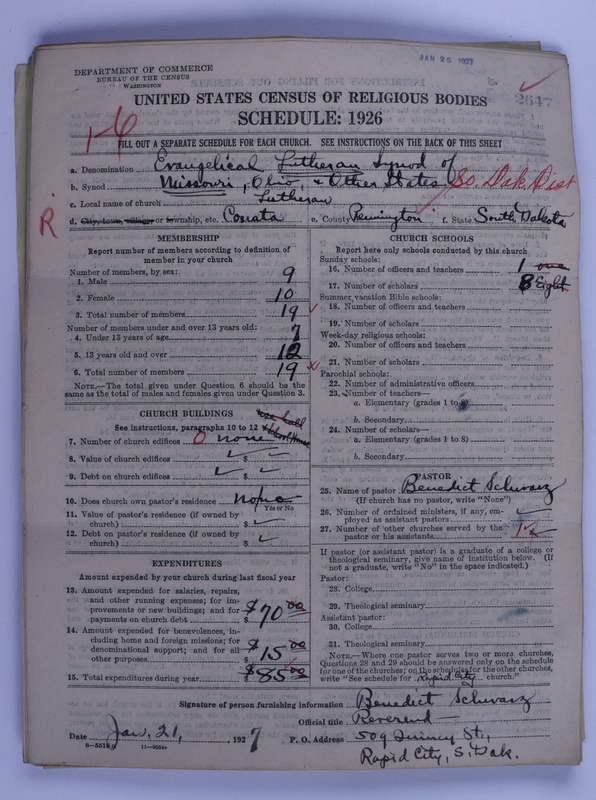 JAN 25 1927
DEPARTMENT OF COMMERCE
BUREAU OF THE CENSUS
WASHINGTON
2647
UNITED STATES CENSUS OF RELIGIOUS BODIES
SCHEDULE: 1926
1-6
FILL OUT A SEPARATE SCHEDULE FOR EACH CHURCH. SEE INSTRUCTIONS ON THE BACK OF THIS SHEET
a. Denomination Evangelical Lutheran Synod of
b. Synod Missouri, Ohio, & Other States So. Dak. Dist
c. Local name of church Lutheran
R
d. City, town, village, or township, etc. Conata e. County Pennington f. State South Dakota
MEMBERSHIP
Report number of members according to definition of
member in your church
Number of members, by sex:
1. Male 9
2. Female 10
3. Total number of members 19
Number of members under and over 13 years old:
4. Under 13 years of age 7
5. 13 years old and over 12
6. Total number of members 19
NOTE.—The total given under Question 6 should be the
same as the total of males and females given under Question 3.
CHURCH BUILDINGS
See instructions, paragraphs 10 to 12
7. Number of church edifices 0 none
8. Value of church edifices $
9. Debt on church edifices $
10. Does church own pastor's residence none
Yes or No
11. Value of pastor's residence (if owned by
church) $
12. Debt on pastor's residence (if owned by
church) $
EXPENDITURES
Amount expended by your church during last fiscal year
13. Amount expended for salaries, repairs,
and other running expenses; for im-
provements or new buildings; and for
payments on church debt $ 70 00
14. Amount expended for benevolences, in-
cluding home and foreign missions; for
denominational support; and for all
other purposes $ 15 00
15. Total expenditures during year $ 85 00
CHURCH SCHOOLS
Report here only schools conducted by this church
Sunday schools:
16. Number of officers and teachers 1 one
17. Number of scholars 8 Eight
Summer vacation Bible schools:
18. Number of officers and teachers
19. Number of scholars
Week-day religious schools:
20. Number of officers and teachers
21. Number of scholars
Parochial schools:
22. Number of administrative officers
23. Number of teachers—
a. Elementary (grades 1 to 8)
b. Secondary
24. Number of scholars—
a. Elementary (grades 1 to 8)
b. Secondary
PASTOR
25. Name of pastor Benedict Schwarz
(If church has no pastor, write "None")
26. Number of ordained ministers, if any, em-
ployed as assistant pastors
27. Number of other churches served by the
pastor or his assistants
If pastor (or assistant pastor) is a graduate of a college or
theological seminary, give name of institution below. (If
not a graduate, write "No" in the space indicated.)
Pastor:
28. College
29. Theological seminary
Assistant pastor:
30. College
31. Theological seminary
NOTE.—Where one pastor serves two or more churches,
Questions 28 and 29 should be answered only on the schedule
for one of the churches; on the schedules for the other churches,
write "See schedule for Rapid City church."
Signature of person furnishing information Benedict Schwarz
Official title Reverend
Date Jan. 21, 1927 P. O. Address 509 Quincy St.,
Rapid City, S. Dak.